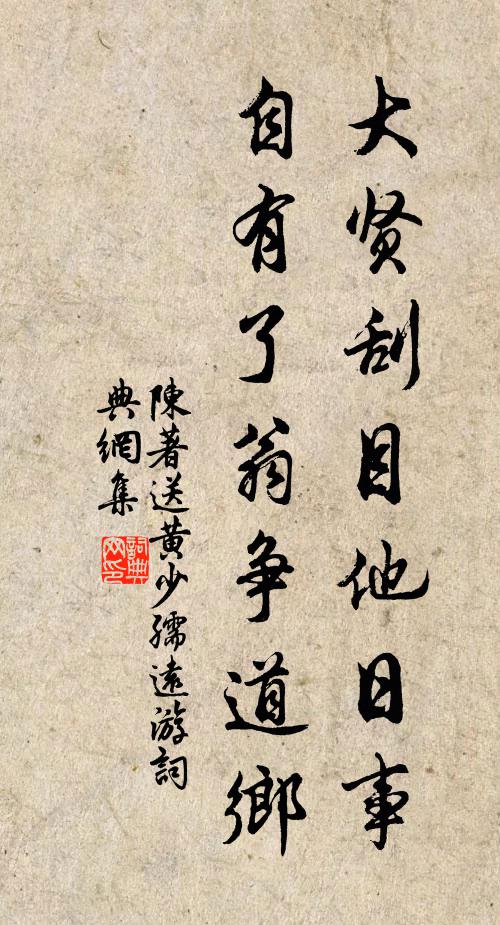 大贤刮目他日事
自有了翁争道鄉
陳著送黄少孺遠游詞
典網集
詞典網印